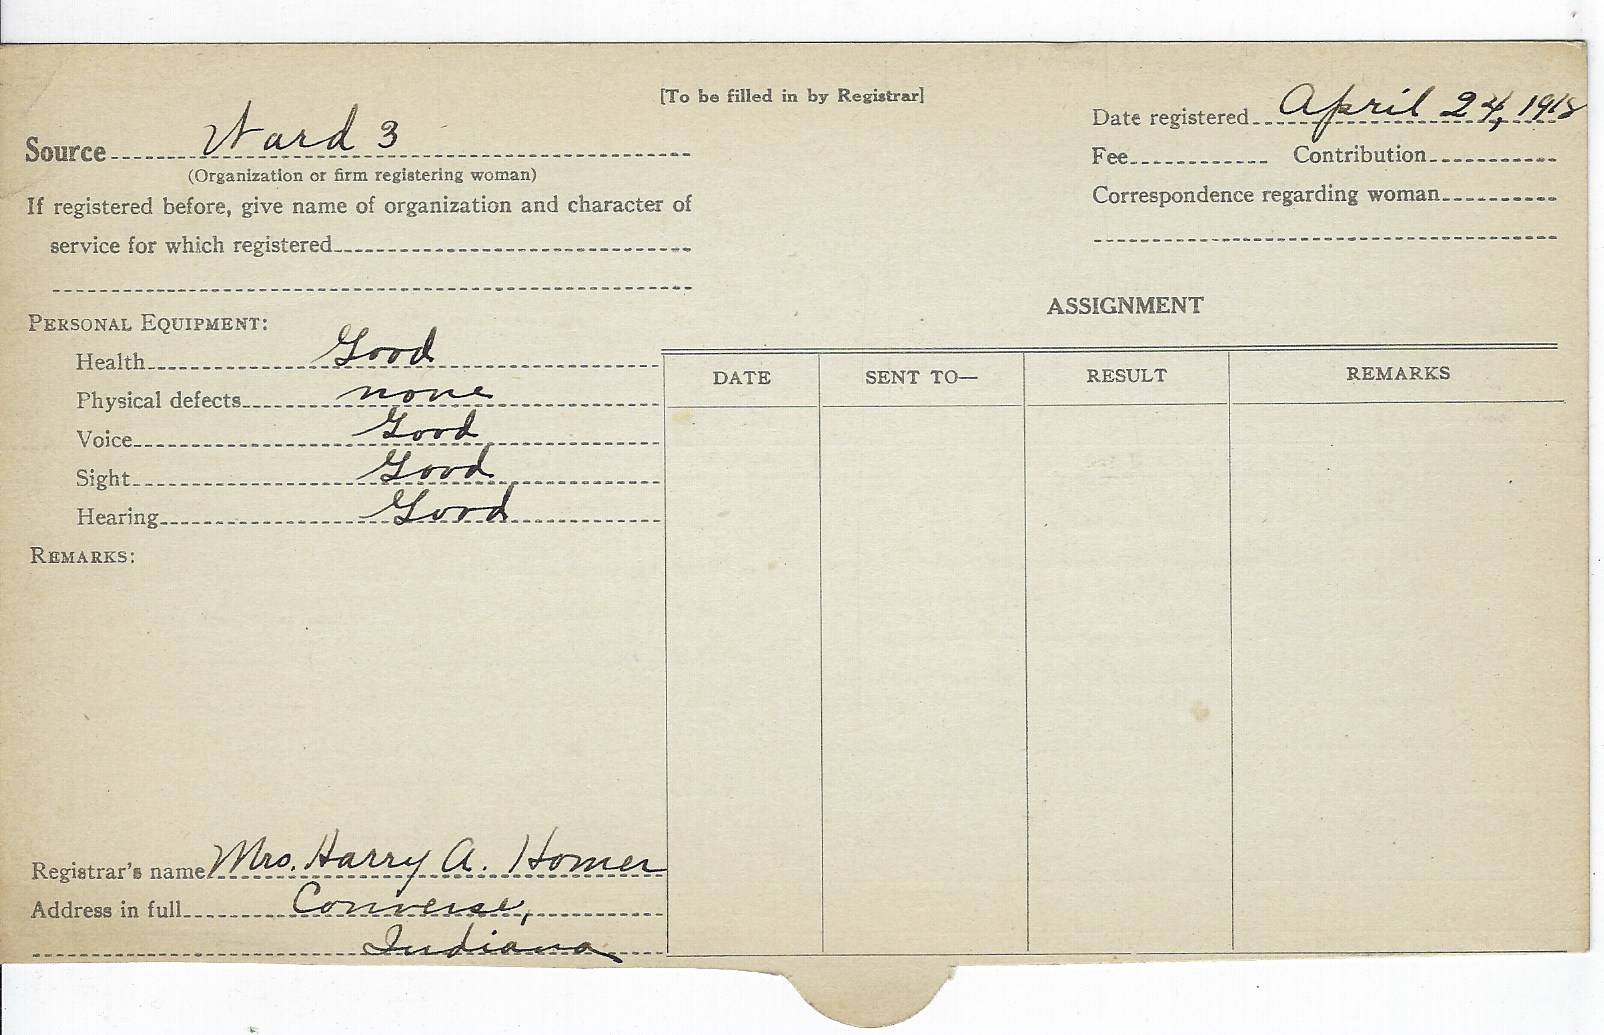 [To be filled in by Registrar]
Source Ward 3
(Organization or firm registering woman)
If registered before, give name of organization and character of
service for which registered
Date registered April 24, 1918
Fee Contribution
Correspondence regarding woman
PERSONAL EQUIPMENT:
Health Good
Physical defects none
Voice Good
Sight Good
Hearing Good
REMARKS:
Registrar's name Mrs. Harry A. Homer
Address in full Converse,
Indiana
ASSIGNMENT
DATE SENT TO— RESULT REMARKS